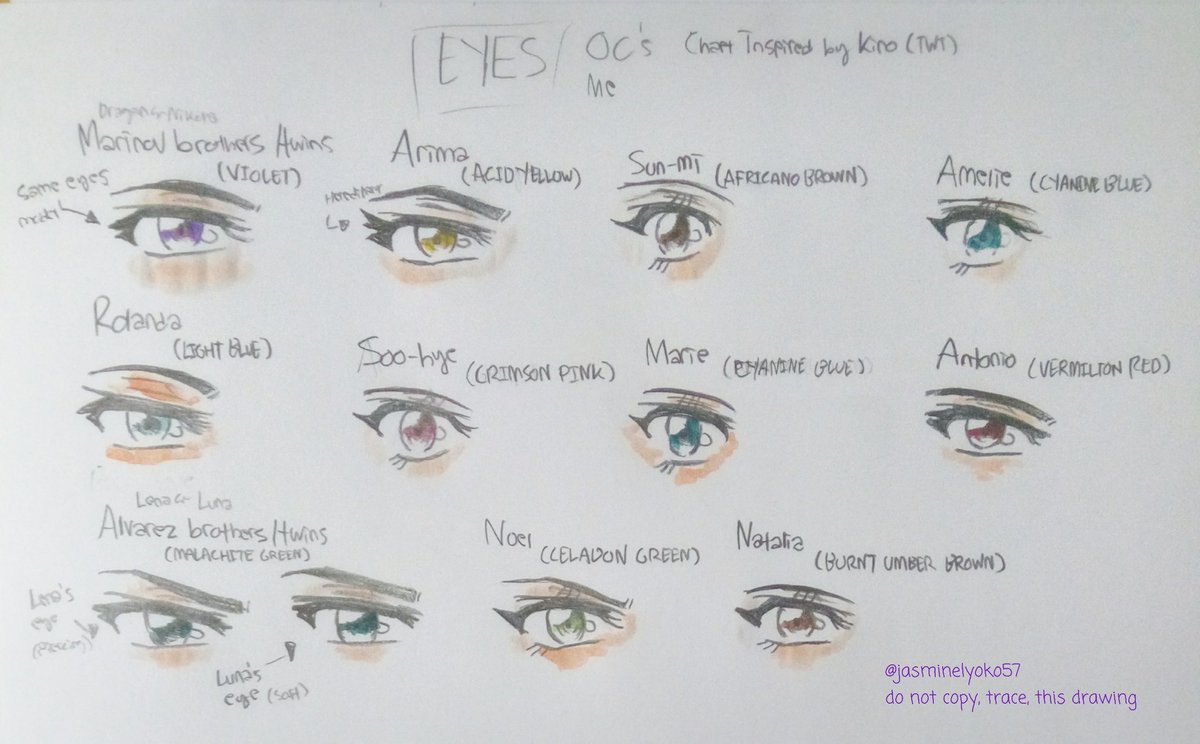 EYES / OC's Chart Inspired by Kino (TWT)
Me
Dragan & Nikola
Marinov brothers/twins
(VIOLET)
Same eyes
Arima
(ACID YELLOW)
Sun-mi (AFRICANO BROWN)
Amelie (CYANINE BLUE)
Rolanda
(LIGHT BLUE)
Soo-hye (CRIMSON PINK)
Marie (CYANINE BLUE)
Antonio (VERMILION RED)
Lena & Luna
Alvarez brothers/twins
(MALACHITE GREEN)
Lena's
eye
(Piercing)
Luna's
eye (soft)
Noel (CELADON GREEN)
Natalia (BURNT UMBER BROWN)
@jasminelyoko57
do not copy, trace, this drawing